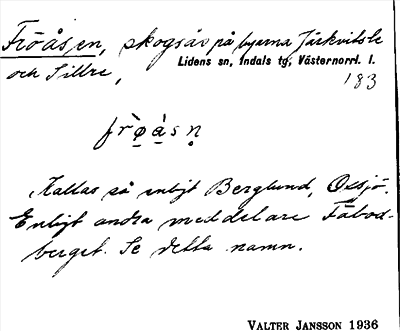 Fröåsen, skogsås på byarna Järkvitsle
Lidens sn, Indals tg, Västernorrl. l.
och Sillre,
183
frø̀ås n̥
Kallas så enligt Berglund, Oxsjö.
Enligt andra meddelare Fäbod-
berget. Se detta namn.
VALTER JANSSON 1936